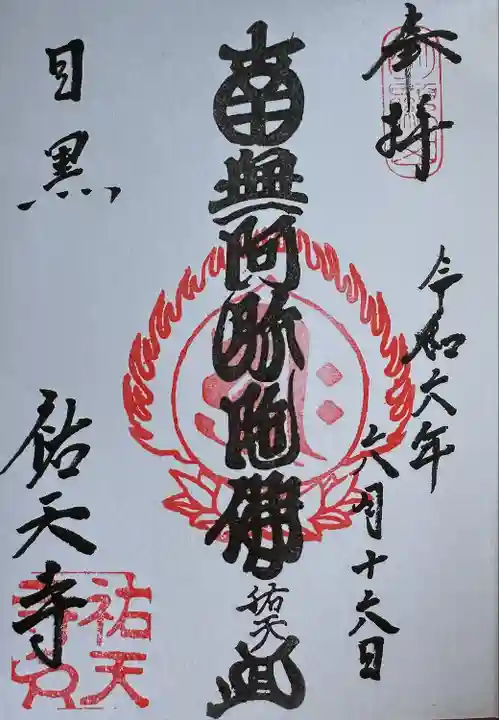 奉拝
令和六年
六月十六日
南無阿弥陀佛
祐天
目黒
祐天寺
祐天
寺